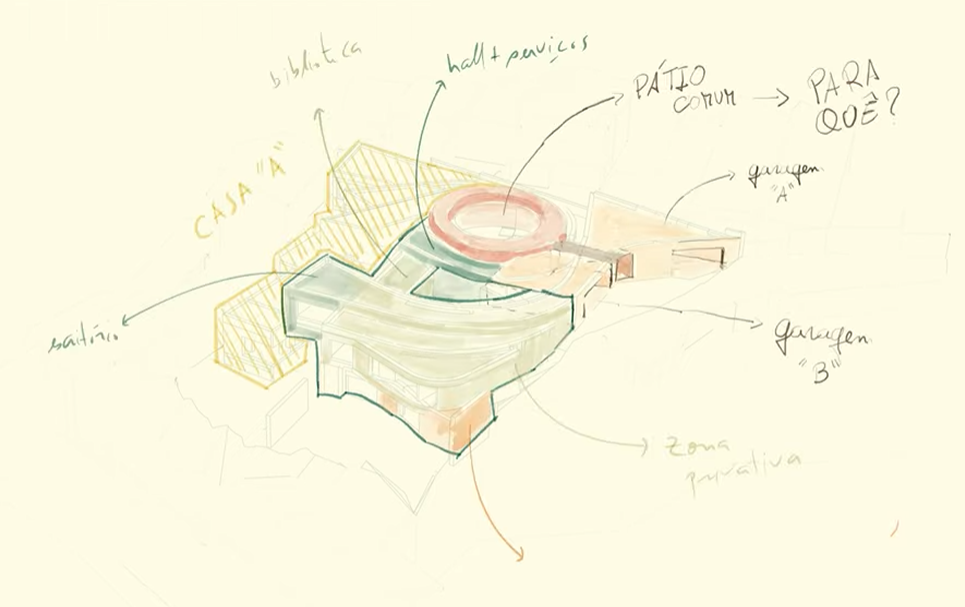 biblioteca
hall + serviços
PÁTIO
COMUM
PARA
QUÊ?
CASA "A"
garagem
"A"
garagem
"B"
zona
privativa